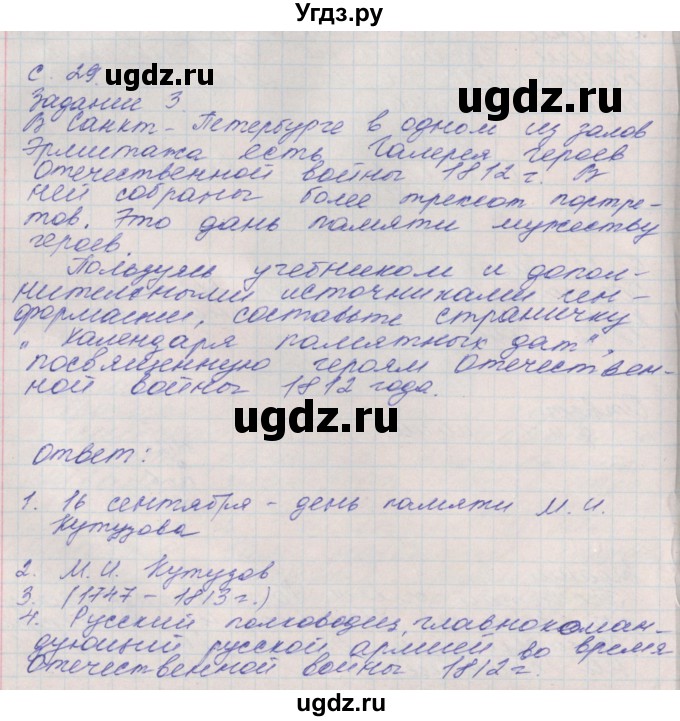 Угдз.ру
с. 29.
Задание 3.
В Санкт-Петербурге в одном из залов
Эрмитажа есть Галерея героев
Отечественной войны 1812 г. В
ней собраны более трехсот портре-
тов. Это дань памяти мужеству
героев.
Пользуясь учебником и допол-
нительными источниками ин-
формации, составьте страничку
"Календаря памятных дат",
посвященную героям Отечествен-
ной войны 1812 года.
ответ:
1. 16 сентября - день памяти М. И.
Кутузова
2. М. И. Кутузов
3. (1747 - 1813 г.)
4. Русский полководец, главнокоман-
дующий русской армией во время
Отечественной войны 1812 г.
ugdz.ru
ugdz.ru
ugdz.ru
ugdz.ru
ugdz.ru
ugdz.ru
ugdz.ru
ugdz.ru